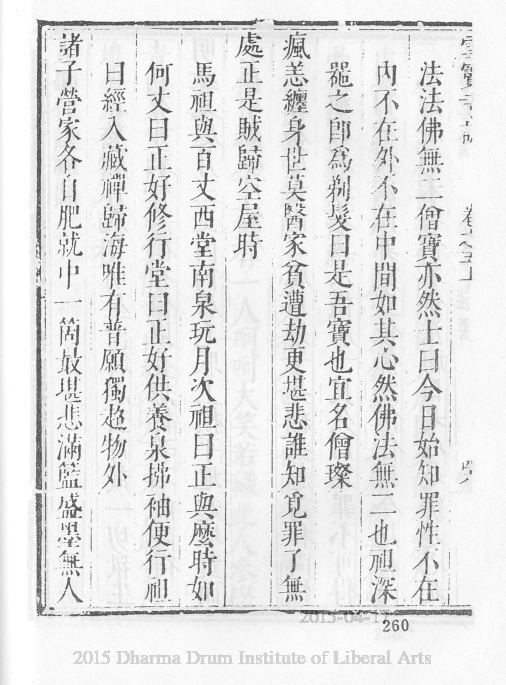 法法佛無二僧寶亦然士曰今日始知罪性不在
內不在外不在中間如其心然佛法無二也祖深
器之即為剃髮曰是吾寶也宜名僧璨
瘋恙纏身世莫醫家貧遭劫更堪悲誰知覓罪了無
處正是賊歸空屋時
馬祖與百丈西堂南泉玩月次祖曰正與麼時如
何丈曰正好修行堂曰正好供養泉拂袖便行祖
曰經入藏禪歸海唯有普願獨超物外
諸子營家各自肥就中一箇最堪悲滿籃盛墨無人
260
2015 Dharma Drum Institute of Liberal Arts